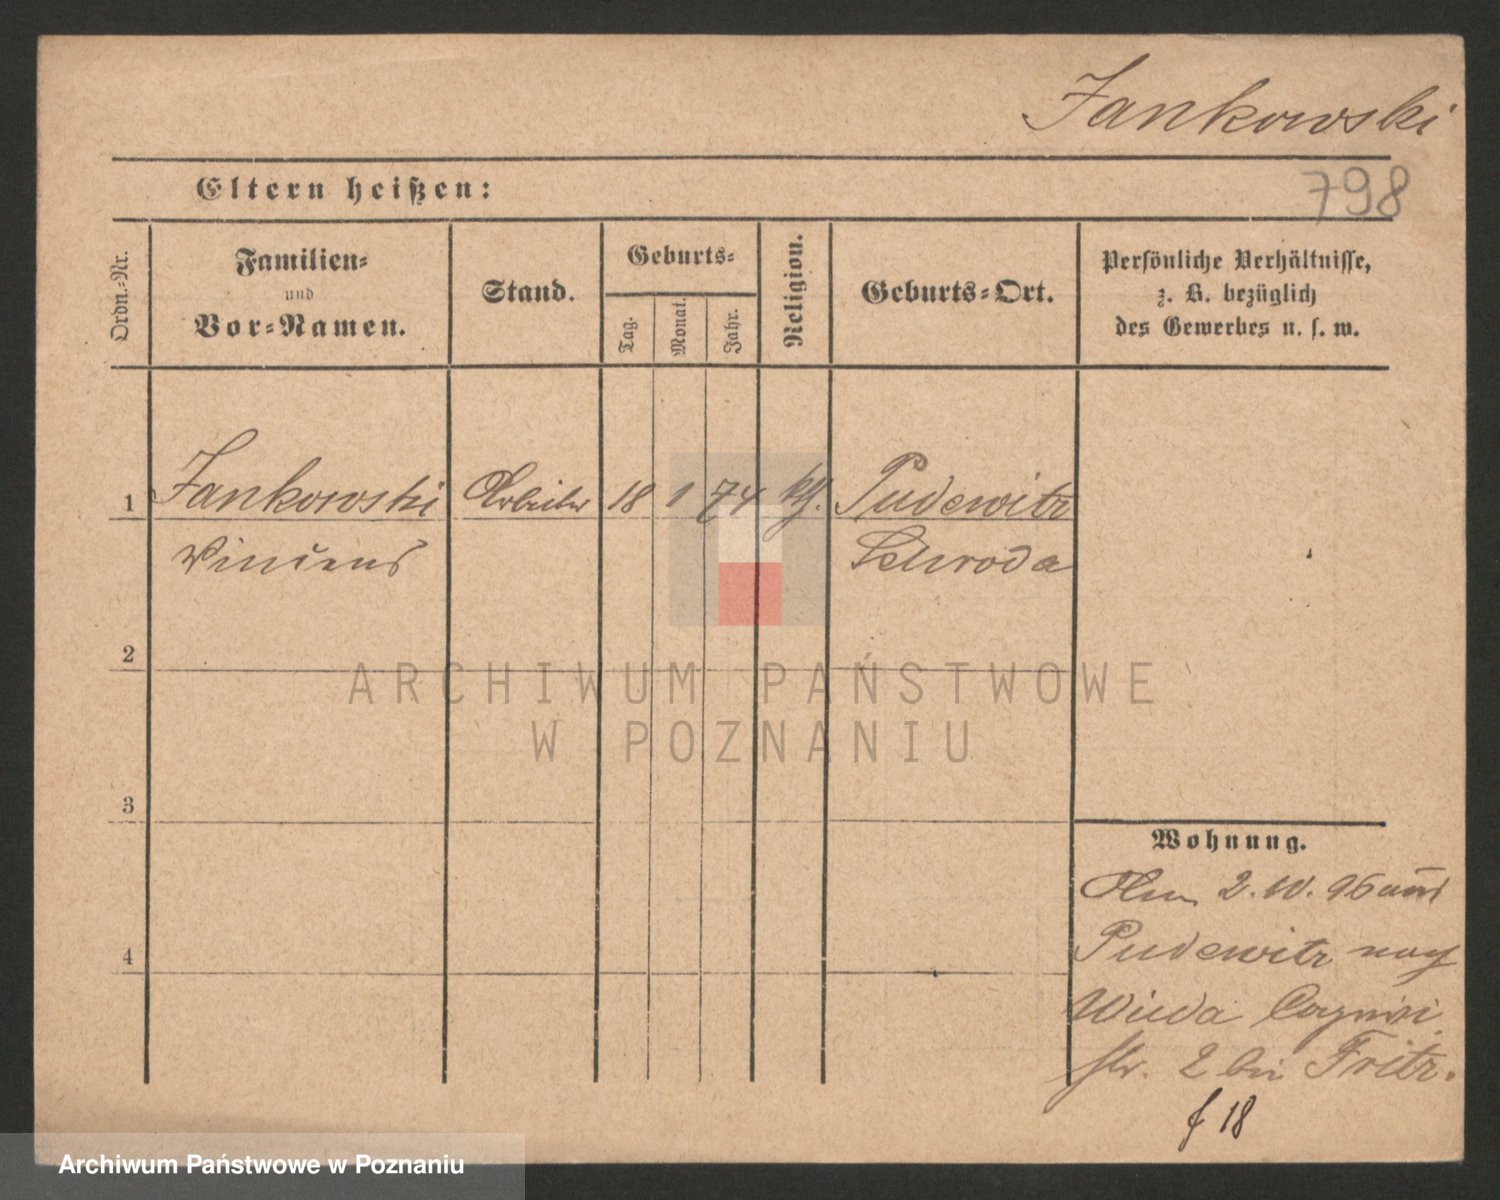 Jankowski
798
Eltern heißen:
Ordn.-Nr.
Familien-
und
Vor-Namen.
Stand.
Geburts-
Tag.
Monat.
Jahr.
Religion.
Geburts-Ort.
Persönliche Verhältnisse,
z. B. bezüglich
des Gewerbes u. s. w.
1 Jankowski Arbeiter 18 1 74 kth. Pudewitz
Vincens Schroda
2
ARCHIWUM PAŃSTWOWE
W POZNANIU
3
Wohnung.
2. 10. 96 aus
Pudewitz nach
4
Wieda
str. 2 bei Fritz.
18
Archiwum Państwowe w Poznaniu